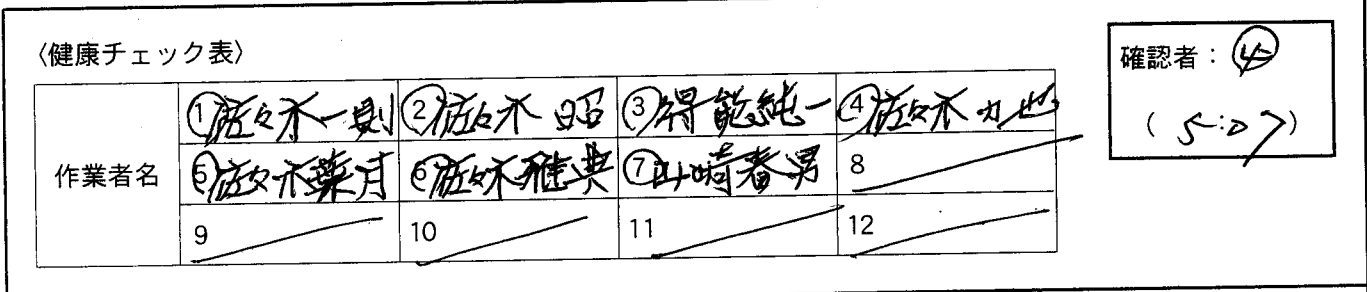 〈健康チェック表〉
確認者：④
(5:07)
作業者名
①佐々木一則 ②佐々木昭 ③得能純一 ④佐々木力也
⑤佐々木葉月 ⑥佐々木雅典 ⑦山崎春男 8
9 10 11 12